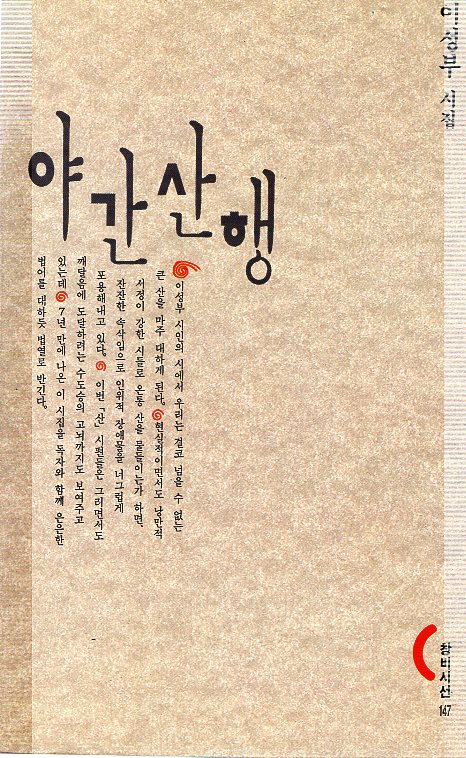 이성부 시집
야간산행
이성부 시인의 시에서 우리는 결코 넘을 수 없는
큰 산을 마주 대하게 된다. 현실적이면서도 낭만적
서정이 강한 시들로 온통 산을 물들이는가 하면,
잔잔한 속삭임으로 인위적 장애물을 너그럽게
포용해내고 있다. 이번 「산」 시편들은 그러면서도
깨달음에 도달하려는 수도승의 고뇌까지도 보여주고
있는데 7년 만에 나온 이 시집을 독자와 함께 은은한
법어를 대하듯 법열로 반긴다.
창비시선
147